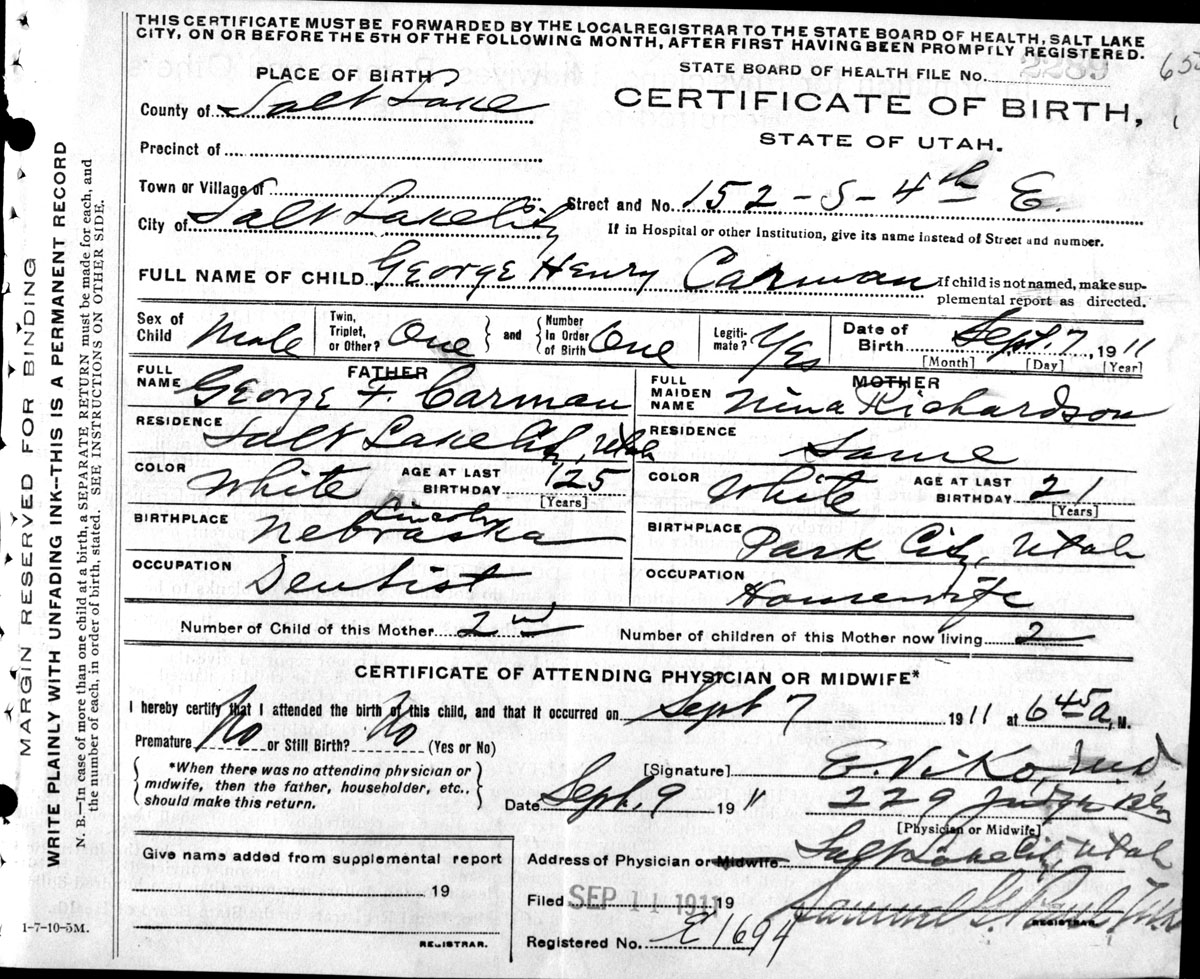 THIS CERTIFICATE MUST BE FORWARDED BY THE LOCAL REGISTRAR TO THE STATE BOARD OF HEALTH, SALT LAKE
CITY, ON OR BEFORE THE 5TH OF THE FOLLOWING MONTH, AFTER FIRST HAVING BEEN PROMPTLY REGISTERED.
STATE BOARD OF HEALTH FILE No. 2289
PLACE OF BIRTH
CERTIFICATE OF BIRTH,
STATE OF UTAH.
County of Salt Lake
Precinct of
Town or Village of
Street and No. 152 - S - 4th E.
City of Salt Lake City
If in Hospital or other Institution, give its name instead of Street and number.
FULL NAME OF CHILD George Henry Carman
If child is not named, make sup-
plemental report as directed.
Sex of Child Male
Twin, Triplet, or Other? One and Number In Order of Birth One
Legiti-mate? Yes
Date of Birth Sept. 7, 1911
[Month] [Day] [Year]
FATHER
FULL NAME George F. Carman
RESIDENCE Salt Lake City, Utah
COLOR White AGE AT LAST BIRTHDAY 25
[Years]
BIRTHPLACE Lincoln Nebraska
OCCUPATION Dentist
MOTHER
FULL MAIDEN NAME Nina Richardson
RESIDENCE Same
COLOR White AGE AT LAST BIRTHDAY 21
[Years]
BIRTHPLACE Park City, Utah
OCCUPATION Housewife
Number of Child of this Mother 2nd
Number of children of this Mother now living 2
CERTIFICATE OF ATTENDING PHYSICIAN OR MIDWIFE*
I hereby certify that I attended the birth of this child, and that it occurred on Sept 7 1911 at 6 45 a, M.
Premature No or Still Birth? No (Yes or No)
*When there was no attending physician or
midwife, then the father, householder, etc.,
should make this return.
[Signature] E. Viko, M.D.
Date Sept. 9 1911
229
[Physician or Midwife]
Address of Physician or Midwife Salt Lake City, Utah
Give name added from supplemental report
19
REGISTRAR.
Filed SEP 11 1911 19
Samuel G. Paul
REGISTRAR.
Registered No. E 1694
1-7-10-5M.
MARGIN RESERVED FOR BINDING
WRITE PLAINLY WITH UNFADING INK--THIS IS A PERMANENT RECORD
N. B.—In case of more than one child at a birth, a SEPARATE RETURN must be made for each, and
the number of each, in order of birth, stated. SEE INSTRUCTIONS ON OTHER SIDE.